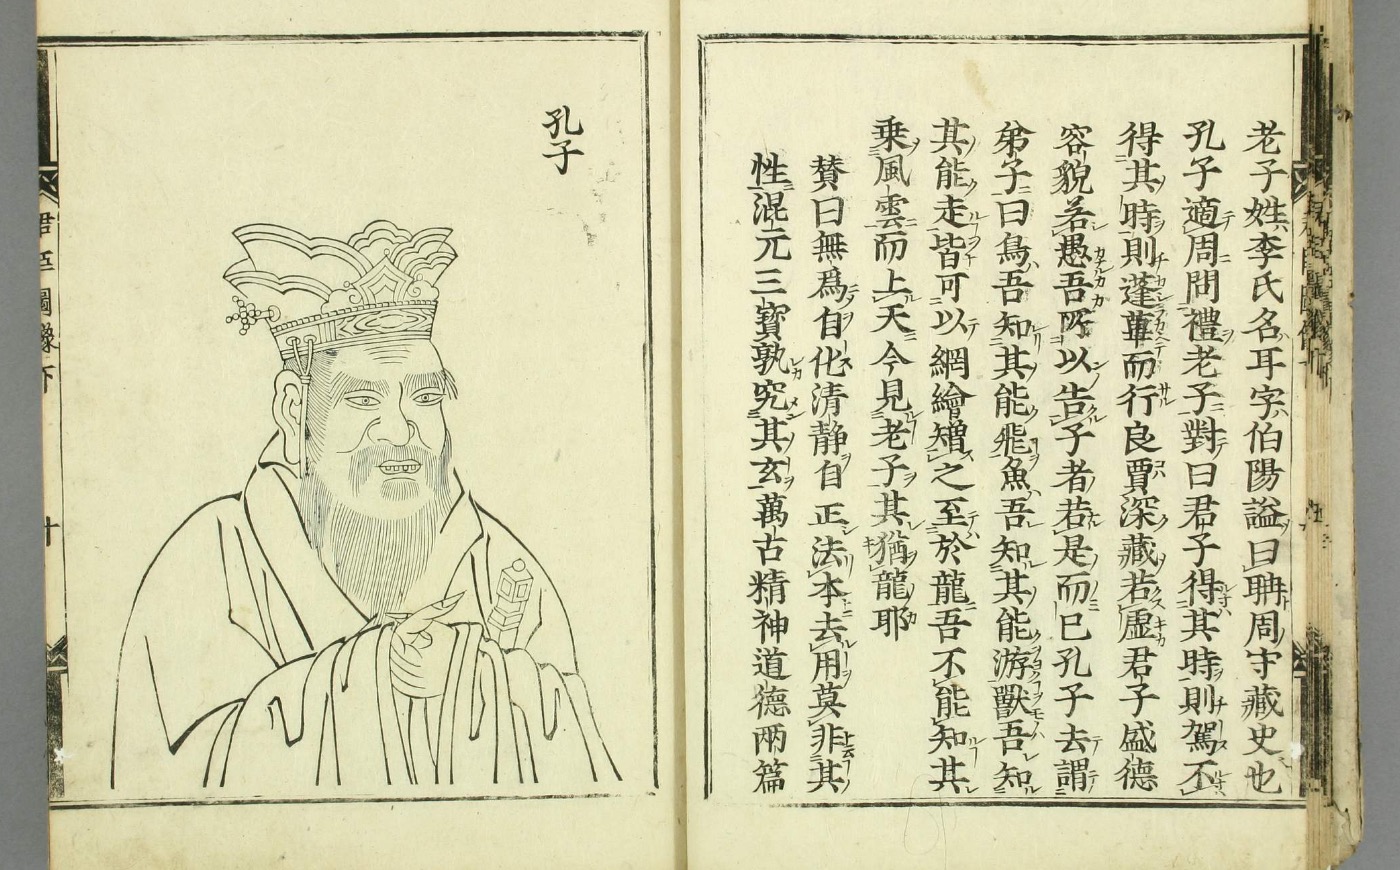 老子姓李氏名耳字伯陽謚曰聃周守藏史也
孔子適周問禮老子對曰君子得其時則駕不
得其時則蓬蔂而行良賈深藏若虛君子盛德
容貌若愚吾所以告子者若是而已孔子去謂
弟子曰鳥吾知其能飛魚吾知其能游獸吾知
其能走皆可以網繪矰之至於龍吾不能知其
乘風雲而上天今見老子其猶龍耶
賛曰無爲自化清静自正法本去用莫非其
性混元三寳孰究其玄萬古精神道德兩篇
孔子
君臣圖像下
十